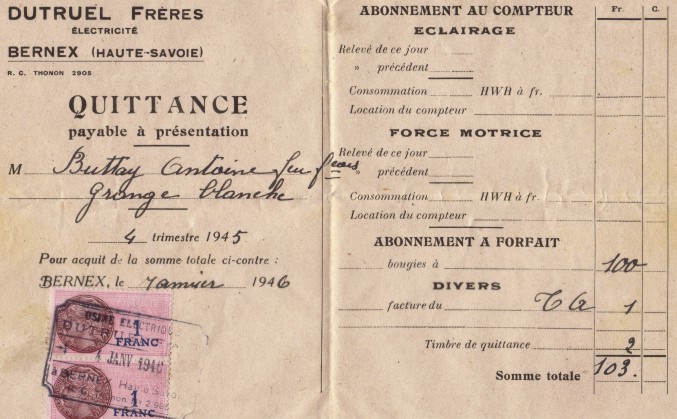 DUTRUEL FRÈRES
ÉLECTRICITÉ
BERNEX (HAUTE-SAVOIE)
R. C. THONON 2905
QUITTANCE
payable à présentation
M Buttay Antoine feu
Grange blanche
4 trimestre 1945
Pour acquit de la somme totale ci-contre :
BERNEX, le Janvier 1946
USINE ELECTRIQUE
DUTRUEL
1
FRANC
4 JANV 1946
à BERNEX Haute-Savoie
1
FRANC
ABONNEMENT AU COMPTEUR Fr. C.
ECLAIRAGE
Relevé de ce jour
» précédent
Consommation HWH à fr.
Location du compteur
FORCE MOTRICE
Relevé de ce jour
» précédent
Consommation HWH à fr.
Location du compteur
ABONNEMENT A FORFAIT
bougies à 100
DIVERS
facture du 1
Timbre de quittance 2
Somme totale 103.